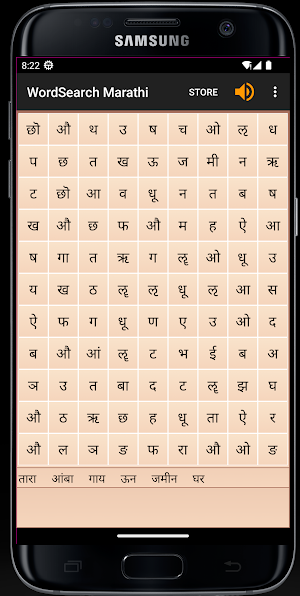 SAMSUNG
8:22
WordSearch Marathi STORE
छो औ थ उ ष च ओ ऌ ध
प छ त ख ऊ ज मी न ऋ
ट छो आ व धू न त ब ष
ख औ छ फ औ म ह ऐ आ
ष गा त ऋ ग ॡ ओ धू उ
य ख ठ ॡ ऌ धू ल आ स
ऐ फ ग धू ण ए उ ओ द
ब औ आं ॡ ट भ ई ब अ
ञ उ त बा द ट ॡ झ घ
औ ठ ऋ छ ह धू ता ऐ र
औ ल ञ ङ फ रा औ ओ ङ
तारा आंबा गाय ऊन जमीन घर